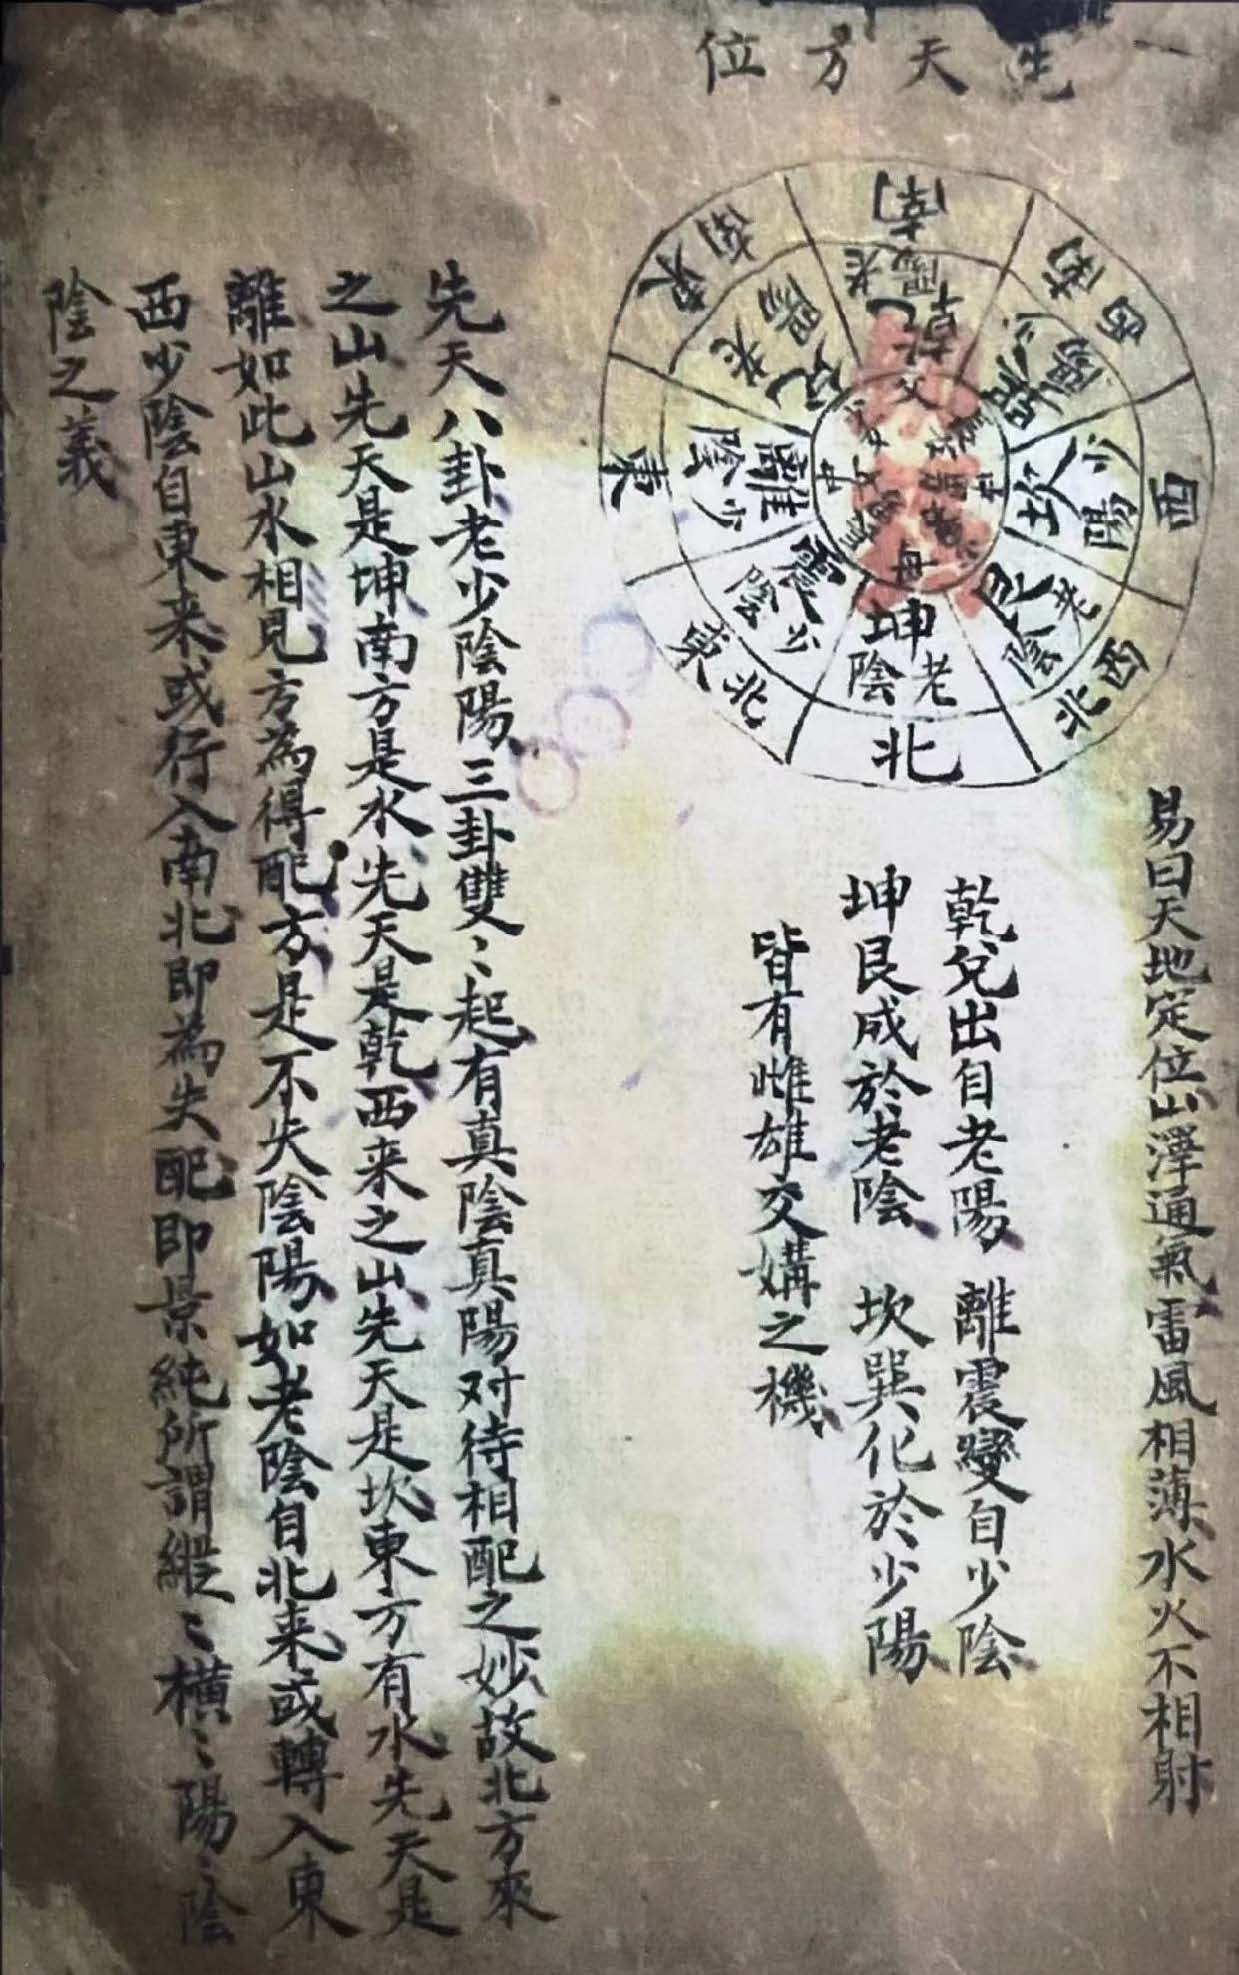 一先天方位
南
老陽
乾
父
西南
少陽
巽
西
少陽
坎
西北
老陰
艮
北
老陰
坤
母
東北
少陰
震
東
少陰
離
中
東南
老陽
兌
易曰天地定位山澤通氣雷風相薄水火不相射
乾兌出自老陽 離震變自少陰
坤艮成於老陰 坎巽化於少陽
皆有雌雄交媾之機
先天八卦老少陰陽三卦雙〻起有真陰真陽对待相配之妙故北方來
之山先天是坤南方是水先天是乾西来之山先天是坎東方有水先天是
離如此山水相見方為得配方是不失陰陽如老陰自北来或轉入東
西少陰自東来或行入南北即為失配即景純所謂縱〻橫〻陽〻陰
陰之義